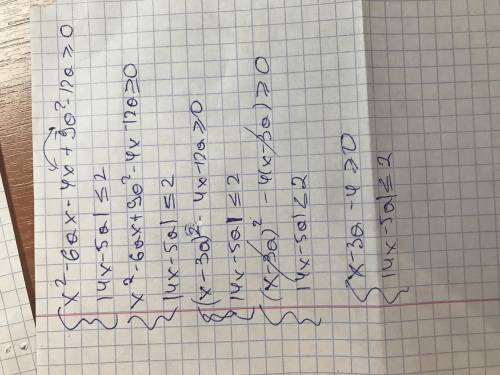 { x² - 6ax - 4x + 9a² - 12a ≥ 0
|4x - 5a| ≤ 2
{ x² - 6ax + 9a² - 4x - 12a ≥ 0
|4x - 5a| ≤ 2
{ (x - 3a)² - 4x - 12a ≥ 0
|4x - 5a| ≤ 2
{ (x - 3a)² - 4(x - 3a) ≥ 0
|4x - 5a| ≤ 2
{ x - 3a - 4 ≥ 0
|4x - 5a| ≤ 2